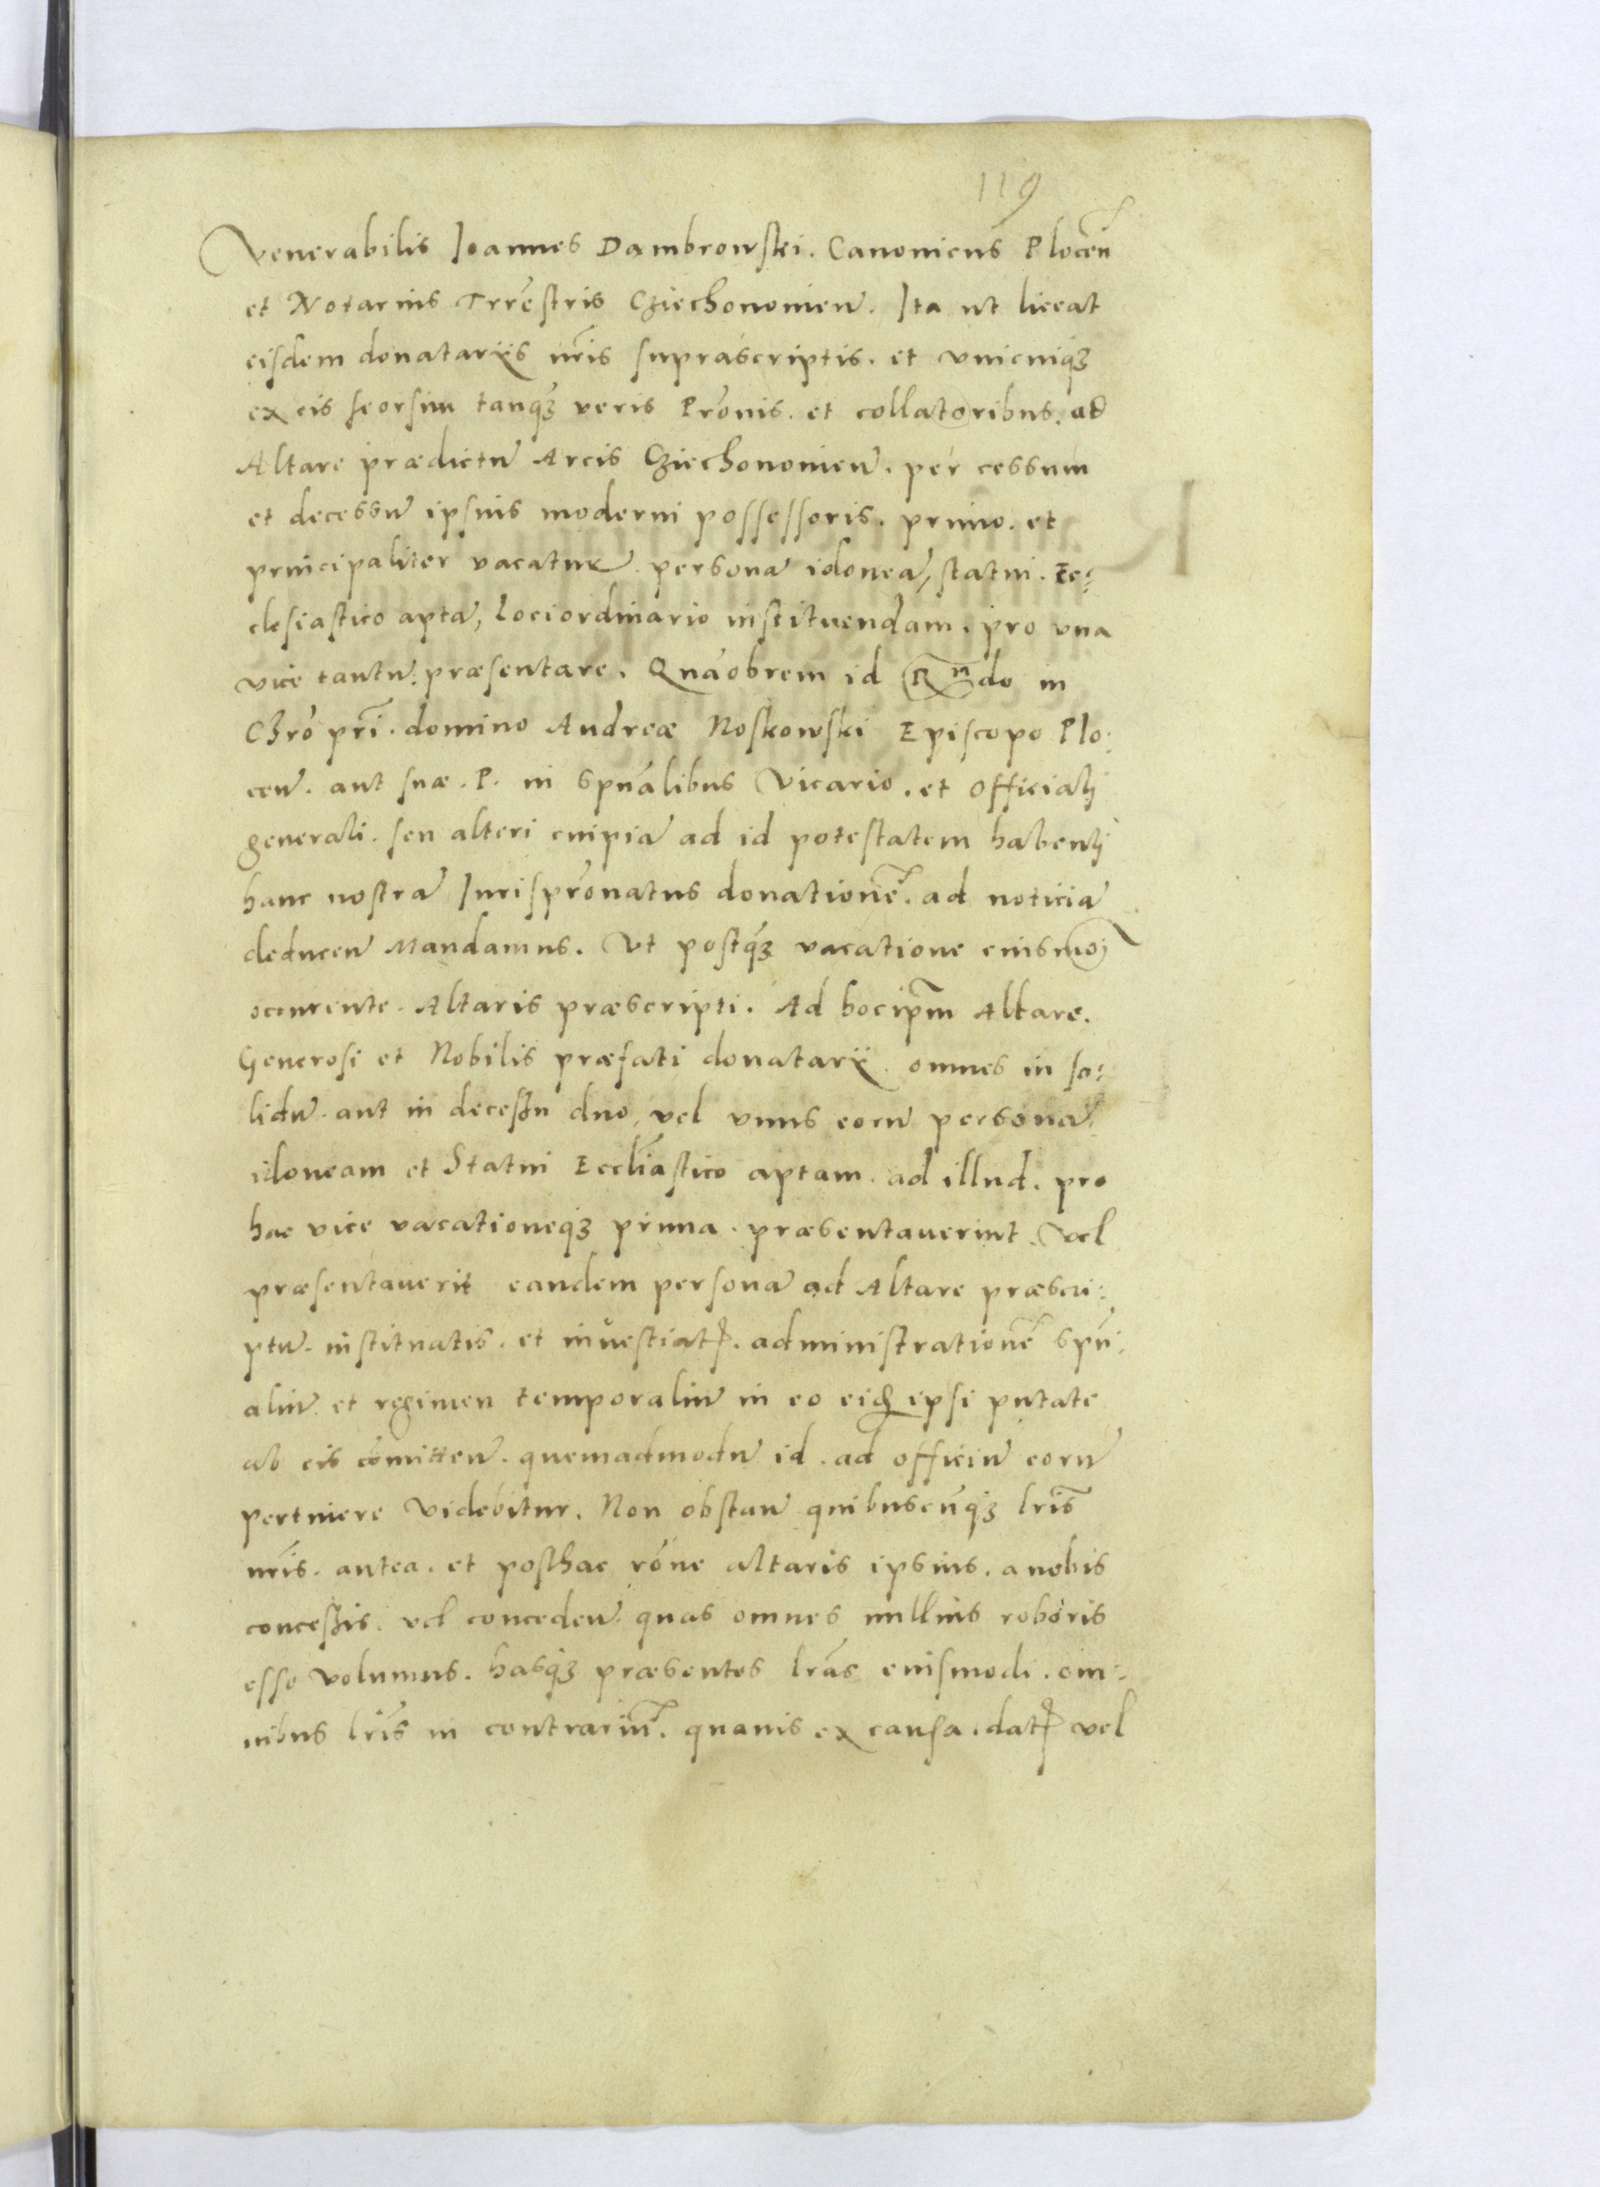 119
Venerabilis Joannes Dambrowski. Canonicus Plocen̄
et Notarius Trr̄estris Cziechonouien̄. Ita ut liceat
eisdem donatariis nr̄is suprascriptis. et vnicuiqꝫ
ex eis seorsim tanqꝫ veris Pr̄onis. et collatoribus. ad
Altare prædictū Arcis Cziechonouien̄. per cessum
et decessū ipsius moderni possessoris. primo. et
principaliter vacaturū. personā idoneā, statui. Ec:
clesiastico aptā, Lociordinario instituendam. pro vna
vice tantū. præsentare. Quāobrem id Rn̄do in
Chrō prī. domino Andreæ Noskowski Episcopo Plo:
cen̄. aut suæ. P. in Spūalibus Vicario. et Officialj
generali. seu alteri cuipiā ad id potestatem habentj
hanc nostrā Jurispr̄onatus donationē. ad noticiā
deducen̄ Mandamus. Vt postqꝫ vacatione eiusmōj
occurente. Altaris præscripti. Ad hocipm̄ Altare.
Generosi et Nobilis præfati donatarii. omnes in so:
lidū. aut in decessu duo, vel vnus eorū personā
idoneam et Statui Eccl̄iastico aptam. ad illud. pro
hac vice vacationeqꝫ prima. præsentauerint. Vel
præsentauerit eandem personā ad Altare præscri:
ptū. instituatis. et inuestiatꝭ. administrationē spūi:
aliū. et regimen temporaliū in eo eidꝫ ipsi putate
ab eis cōmitten̄. quemadmodū id. ad officiū eorū
pertinere Videbitur. Non obstan̄ quibuscunqꝫ lr̄is
nr̄is. antea. et posthac rōne altaris ipsius. a nobis
concessis. vel conceden̄. quas omnes nullius roboris
esse volumus. hasqꝫ præsentes lr̄as eiusmodi. om:
nibus lr̄is in contrariū. quauis ex causa. datꝭ vel